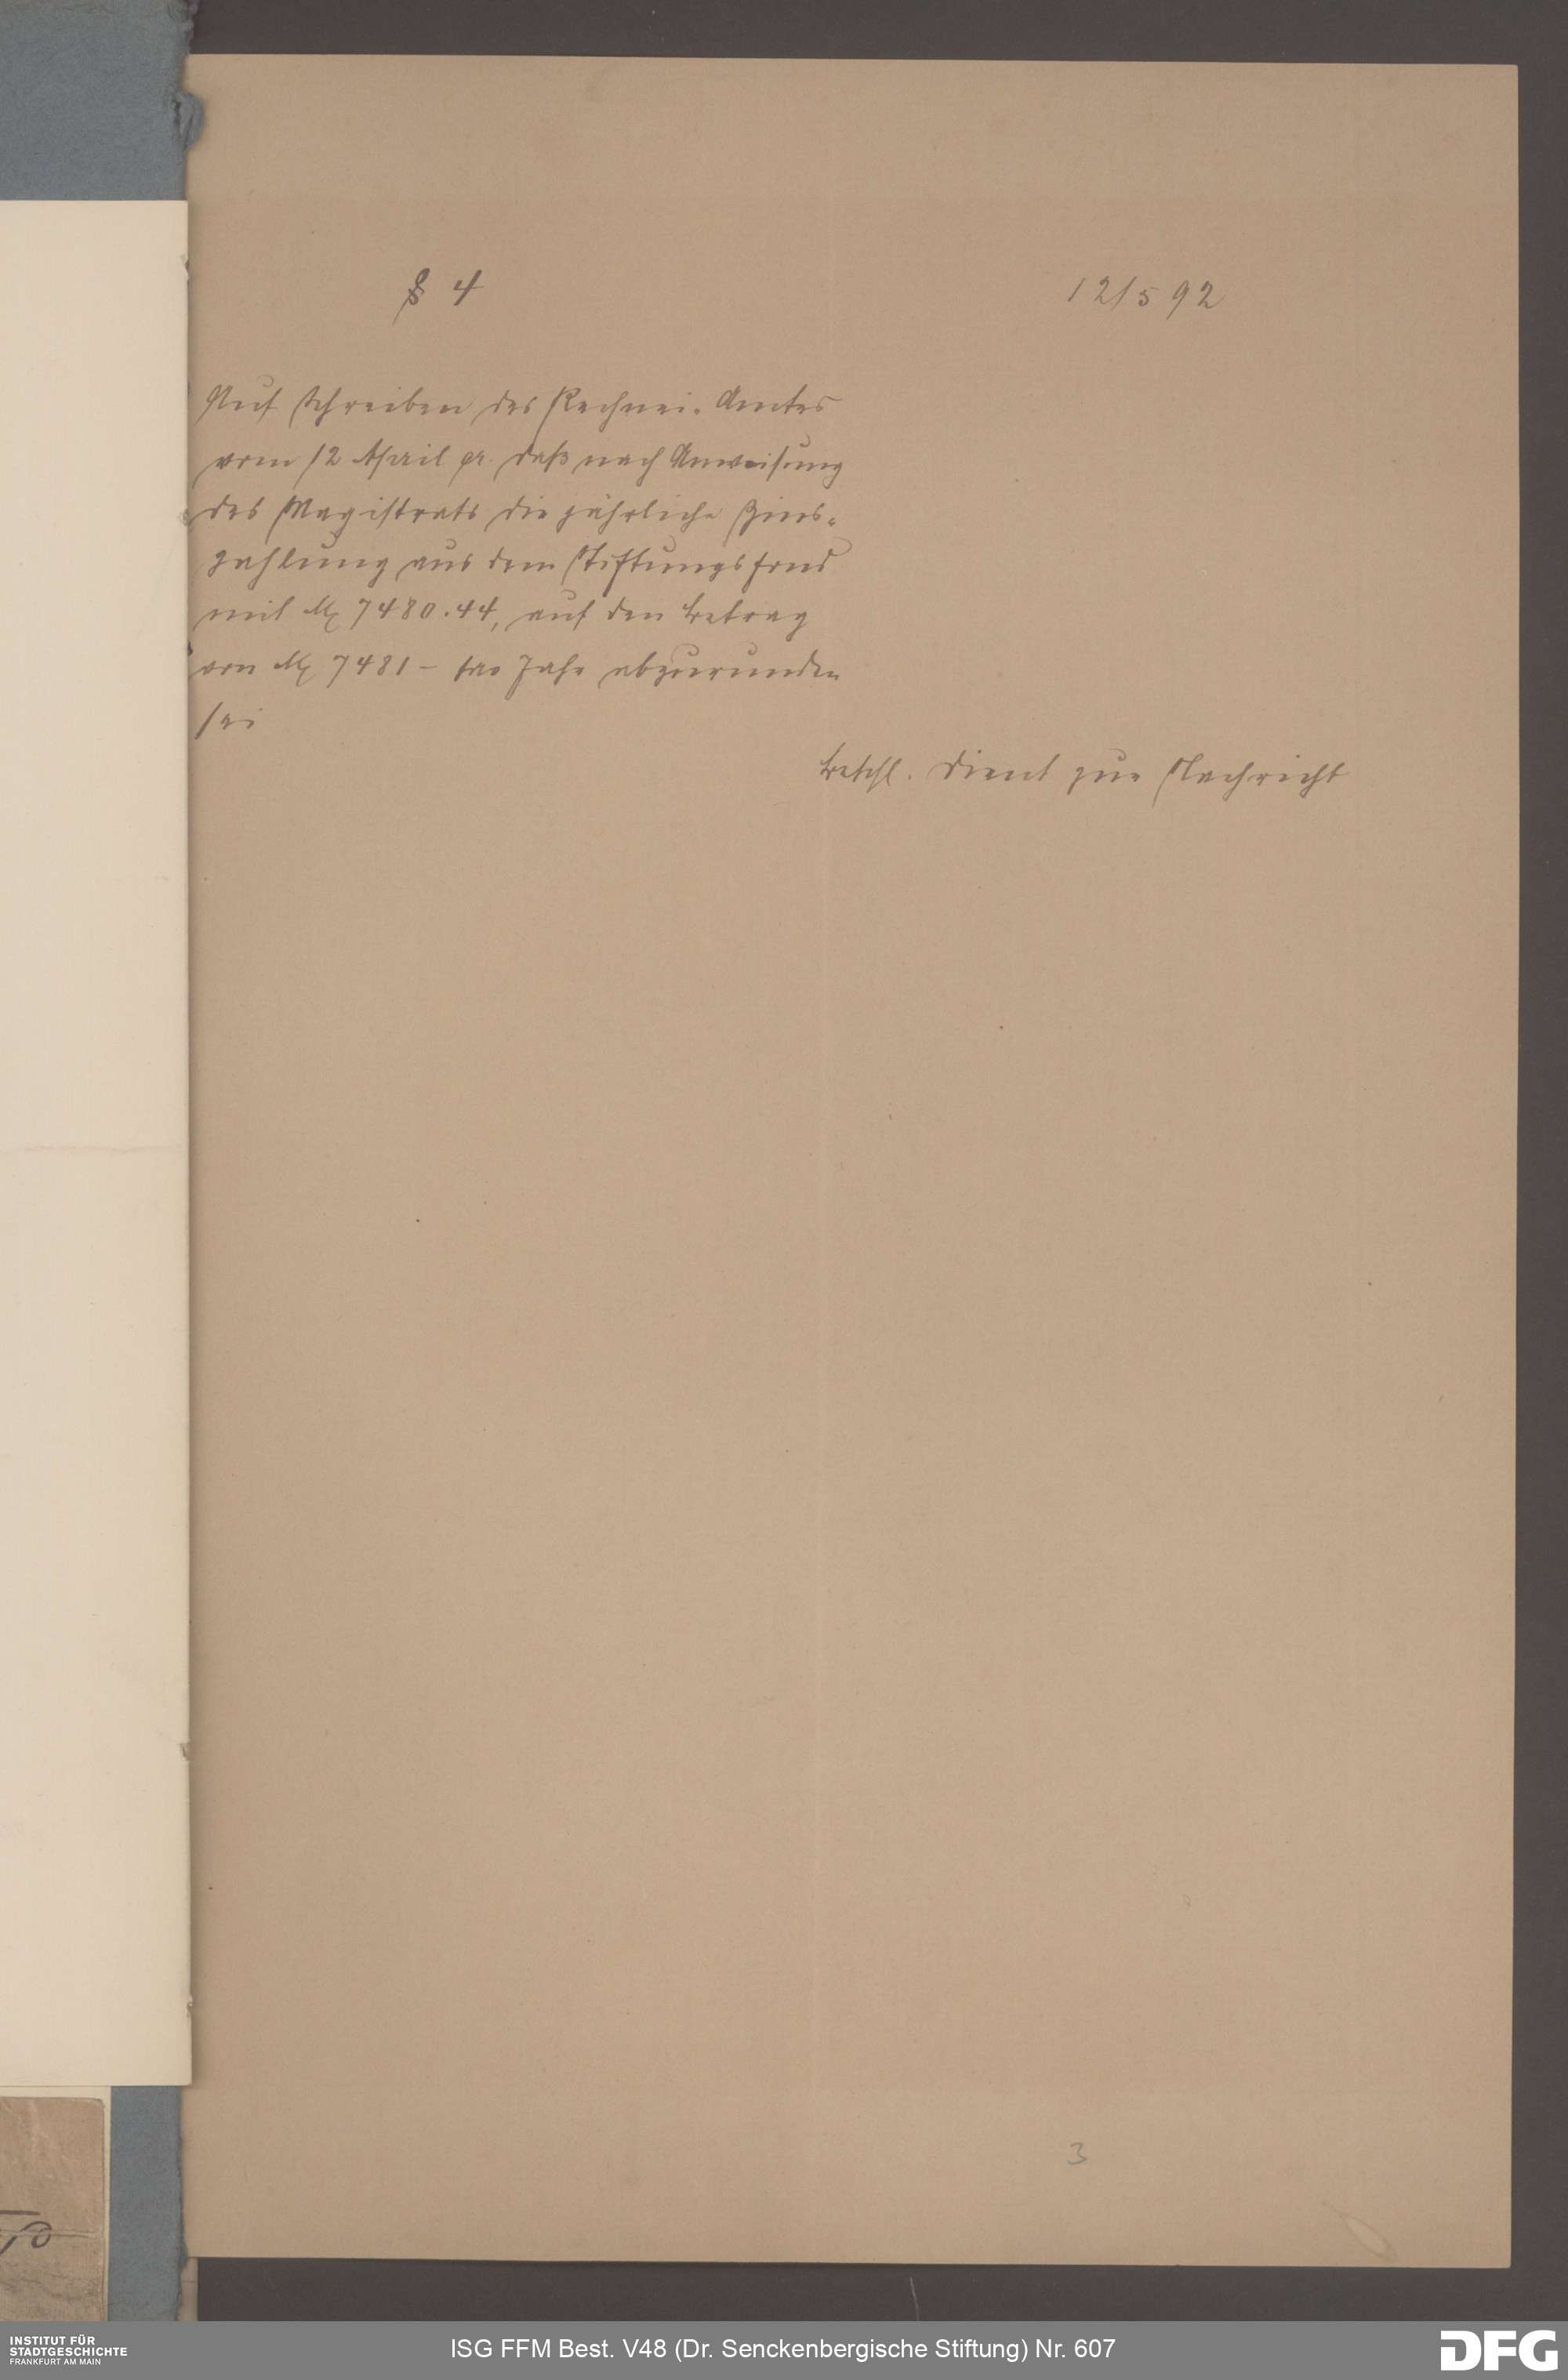 § 4
12/5 92
Auf Schreiben des Rechnei-Amtes
vom 12 April pr. daß nach Anweisung
des Magistrats die jährliche Zins-
zahlung aus dem Stiftungsfond
mit M 7480.44, auf den Betrag
von M 7481 – pro Jahr abzurunden
sei
Beschl. dient zur Nachricht
3
INSTITUT FÜR
STADTGESCHICHTE
FRANKFURT AM MAIN
ISG FFM Best. V48 (Dr. Senckenbergische Stiftung) Nr. 607
DFG